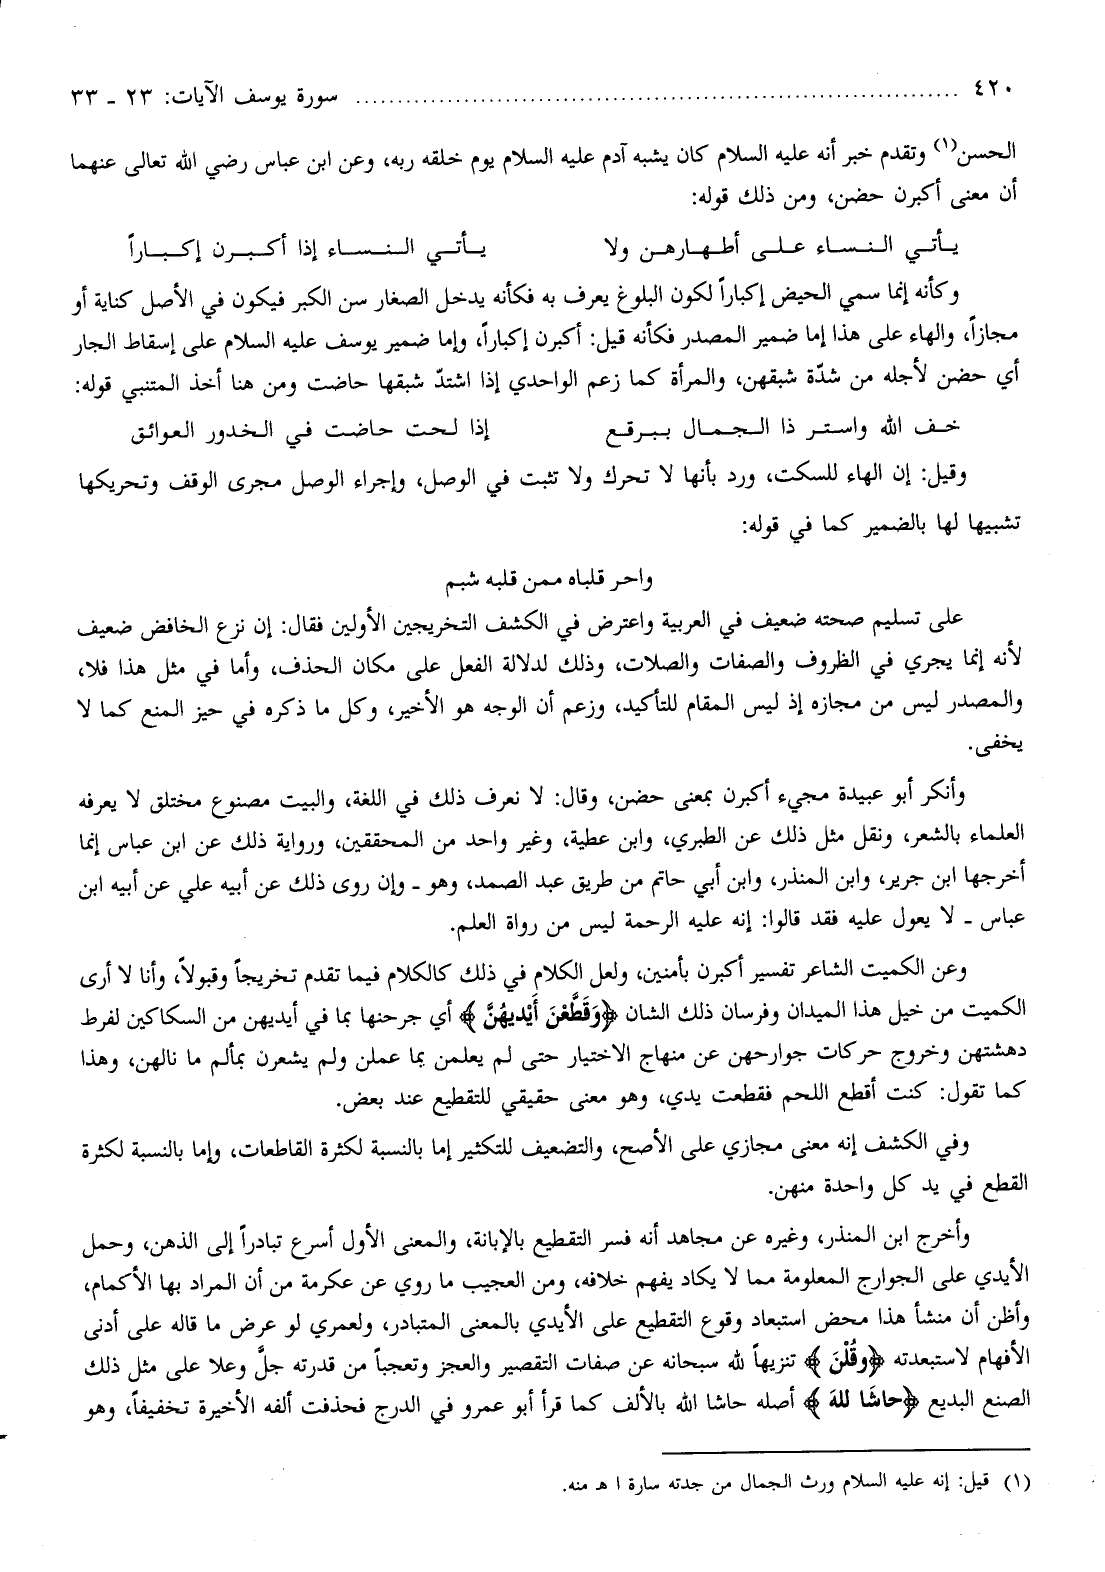 ٤٢٠ .......................................................................... سورة يوسف الآيات: ٢٣ ـ ٣٣
الحسن(١) وتقدم خبر أنه عليه السلام كان يشبه آدم عليه السلام يوم خلقه ربه، وعن ابن عباس رضي الله تعالى عنهما
أن معنى أكبرن حضن، ومن ذلك قوله:
يـأتـي النـسـاء عـلـى أطـهـارهـن ولا يـأتـي النـسـاء إذا أكـبـرن إكـبـاراً
وكأنه إنما سمي الحيض إكباراً لكون البلوغ يعرف به فكأنه يدخل الصغار سن الكبر فيكون في الأصل كناية أو
مجازاً، والهاء على هذا إما ضمير المصدر فكأنه قيل: أكبرن إكباراً، وإما ضمير يوسف عليه السلام على إسقاط الجار
أي حضن لأجله من شدّة شبقهن، والمرأة كما زعم الواحدي إذا اشتدّ شبقها حاضت ومن هنا أخذ المتنبي قوله:
خـف الله واسـتـر ذا الـجـمـال بـبـرقـع إذا لـحـت حـاضـت فـي الـخـدور الـعـواتـق
وقيل: إن الهاء للسكت، ورد بأنها لا تحرك ولا تثبت في الوصل، وإجراء الوصل مجرى الوقف وتحريكها
تشبيها لها بالضمير كما في قوله:
واحر قلباه ممن قلبه شبم
على تسليم صحته ضعيف في العربية واعترض في الكشف التخريجين الأولين فقال: إن نزع الخافض ضعيف
لأنه إنما يجري في الظروف والصفات والصلات، وذلك لدلالة الفعل على مكان الحذف، وأما في مثل هذا فلا،
والمصدر ليس من مجازه إذ ليس المقام للتأكيد، وزعم أن الوجه هو الأخير، وكل ما ذكره في حيز المنع كما لا
يخفى.
وأنكر أبو عبيدة مجيء أكبرن بمعنى حضن، وقال: لا نعرف ذلك في اللغة، والبيت مصنوع مختلق لا يعرفه
العلماء بالشعر، ونقل مثل ذلك عن الطبري، وابن عطية، وغير واحد من المحققين، ورواية ذلك عن ابن عباس إنما
أخرجها ابن جرير، وابن المنذر، وابن أبي حاتم من طريق عبد الصمد، وهو ـ وإن روى ذلك عن أبيه علي عن أبيه ابن
عباس ـ لا يعول عليه فقد قالوا: إنه عليه الرحمة ليس من رواة العلم.
وعن الكميت الشاعر تفسير أكبرن بأمنين، ولعل الكلام في ذلك كالكلام فيما تقدم تخريجاً وقبولاً، وأنا لا أرى
الكميت من خيل هذا الميدان وفرسان ذلك الشان ﴿وَقَطَّعْنَ أَيْديهُنَّ﴾ أي جرحنها بما في أيديهن من السكاكين لفرط
دهشتهن وخروج حركات جوارحهن عن منهاج الاختيار حتى لم يعلمن بما عملن ولم يشعرن بمألم ما نالهن، وهذا
كما تقول: كنت أقطع اللحم فقطعت يدي، وهو معنى حقيقي للتقطيع عند بعض.
وفي الكشف إنه معنى مجازي على الأصح، والتضعيف للتكثير إما بالنسبة لكثرة القاطعات، وإما بالنسبة لكثرة
القطع في يد كل واحدة منهن.
وأخرج ابن المنذر، وغيره عن مجاهد أنه فسر التقطيع بالإبانة، والمعنى الأول أسرع تبادراً إلى الذهن، وحمل
الأيدي على الجوارح المعلومة مما لا يكاد يفهم خلافه، ومن العجيب ما روي عن عكرمة من أن المراد بها الأكمام،
وأظن أن منشأ هذا محض استبعاد وقوع التقطيع على الأيدي بالمعنى المتبادر، ولعمري لو عرض ما قاله على أدنى
الأفهام لاستبعدته ﴿وقُلْنَ﴾ تنزيهاً لله سبحانه عن صفات التقصير والعجز وتعجباً من قدرته جلَّ وعلا على مثل ذلك
الصنع البديع ﴿حاشَا للهَ﴾ أصله حاشا الله بالألف كما قرأ أبو عمرو في الدرج فحذفت ألفه الأخيرة تخفيفاً، وهو
(١) قيل: إنه عليه السلام ورث الجمال من جدته سارة ا هـ منه.